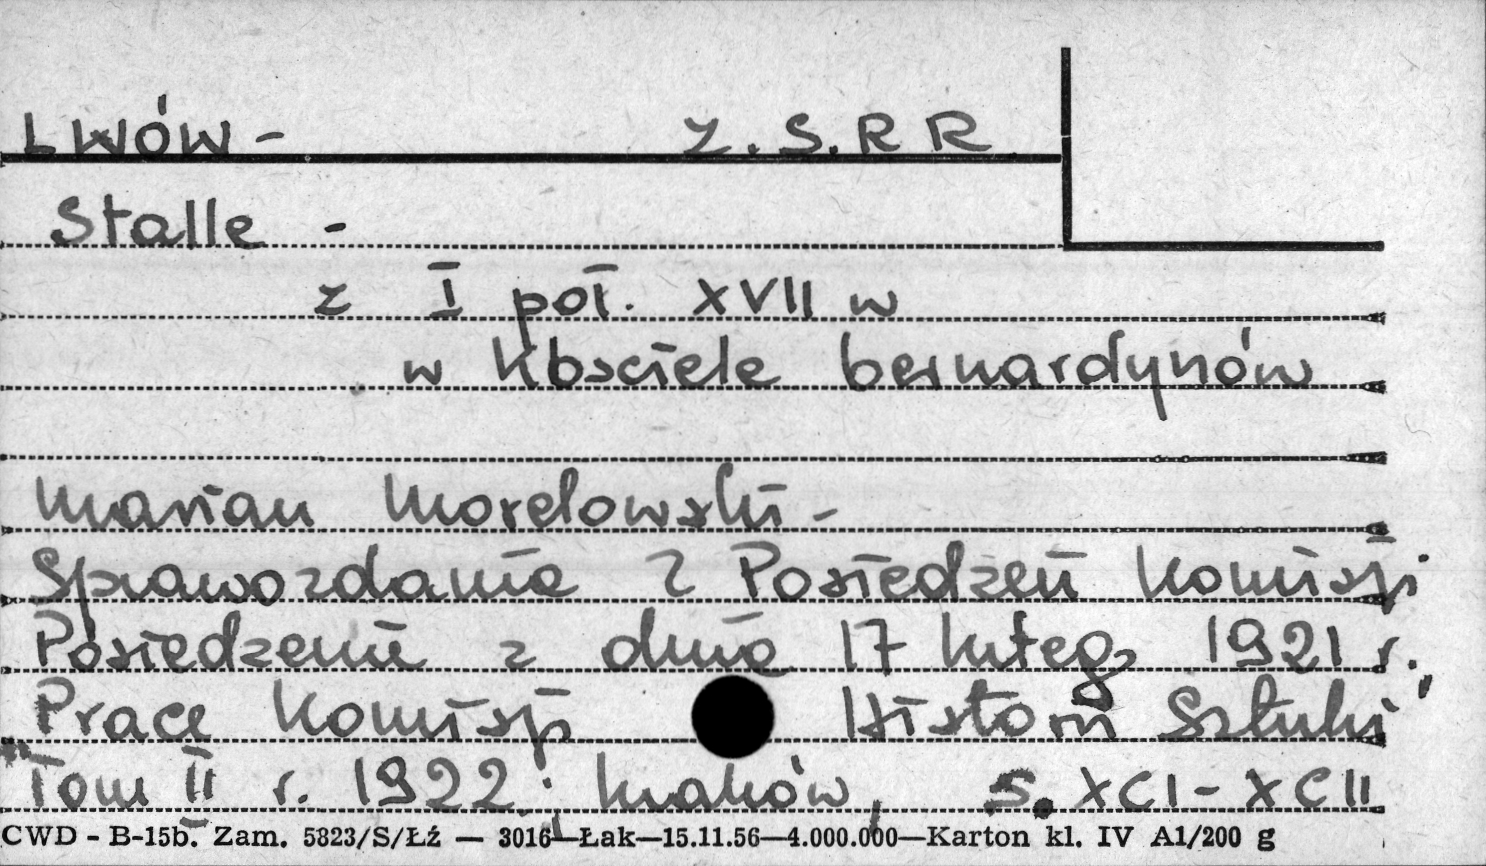 LWÓW - Z.S.R R
Stalle -
z I poł. XVII w
w Kościele bernardynów
Marian Morelowski -
Sprawozdania z Posiedzeń Komisji
Posiedzenie z dnia 17 lutego 1921 r.
Prace Komisji Historii Sztuki
Tom II r. 1922. Kraków, s. XCI - XCII
CWD - B-15b. Zam. 5823/S/Łź — 3016—Łak—15.11.56—4.000.000—Karton kl. IV A1/200 g